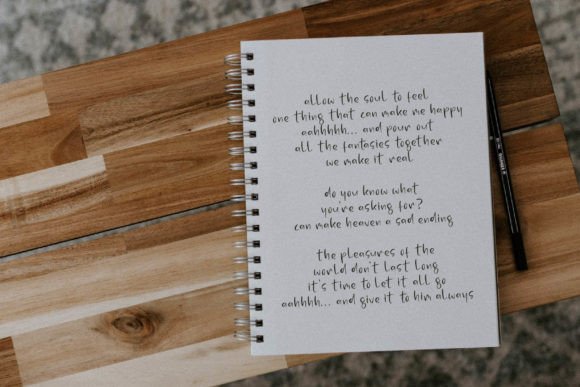 allow the soul to feel
one thing that can make me happy
aahhhhh... and pour out
all the fantasies together
we make it real

do you know what
you're asking for?
can make heaven a sad ending

the pleasures of the
world don't last long
it's time to let it all go
aahhhh... and give it to him always